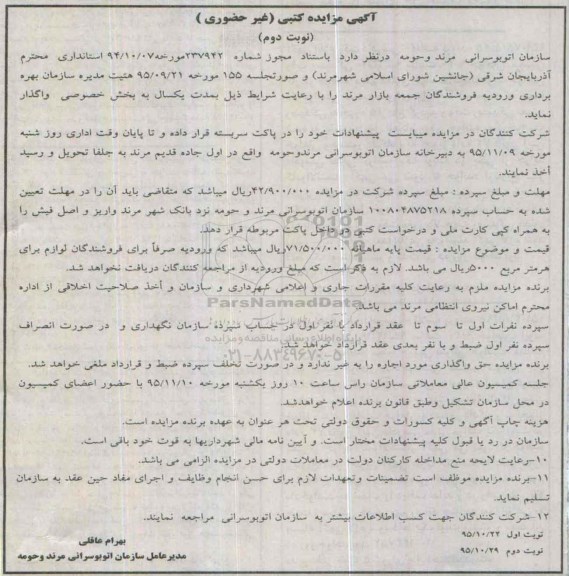 آگهی مزایده کتبی (غیر حضوری )
(نوبت دوم)
سازمان اتوبوسرانی مرند وحومه درنظر دارد باستناد مجوز شماره ۲۳۷۹۴۲مورخه۹۴/۱۰/۰۷ استانداری محترم
آذربایجان شرقی (جانشین شورای اسلامی شهرمرند) و صورتجلسه ۱۵۵ مورخه ۹۵/۰۹/۲۱ هئیت مدیره سازمان بهره
برداری ورودیه فروشندگان جمعه بازار مرند را با رعایت شرایط ذیل بمدت یکسال به بخش خصوصی واگذار
نماید.
شرکت کنندگان در مزایده میبایست پیشنهادات خود را در پاکت سربسته قرار داده و تا پایان وقت اداری روز شنبه
مورخه ۹۵/۱۱/۰۹ به دبیرخانه سازمان اتوبوسرانی مرندوحومه واقع در اول جاده قدیم مرند به جلفا تحویل و رسید
أخذ نمایند.
مهلت و مبلغ سپرده : مبلغ سپرده شرکت در مزایده ۴۲/۹۰۰/۰۰۰ریال میباشد که متقاضی باید آن را در مهلت تعیین
شده به حساب سپرده ۱۰۰۸۰۴۸۷۵۲۱۸ سازمان اتوبوسرانی مرند و حومه نزد بانک شهر مرند واریز و اصل فیش را
به همراه کپی کارت ملی و درخواست کتبی در داخل پاکت مربوطه قرار دهد.
قیمت و موضوع مزایده : قیمت پایه ماهیانه ۷۱/۵۰۰/۰۰۰ریال میباشد که ورودیه صرفاً برای فروشندگان لوازم برای
هرمتر مربع ۵۰۰۰ریال می باشد. لازم به ذکر است که مبلغ ورودیه از مراجعه کنندگان دریافت نخواهد شد.
برنده مزایده ملزم به رعایت کلیه مقررات جاری و اعلامی شهرداری و سازمان و أخذ صلاحیت اخلاقی از اداره
محترم اماکن نیروی انتظامی مرند می باشد.
سپرده نفرات اول تا سوم تا عقد قرارداد با نفر اول در حساب سپرده سازمان نگهداری و در صورت انصراف
سپرده نفر اول ضبط و با نفر بعدی عقد قرارداد خواهد شد.
برنده مزایده حق واگذاری مورد اجاره را به غیر ندارد و در صورت تخلف سپرده ضبط و قرارداد ملغی خواهد شد.
جلسه کمیسیون عالی معاملاتی سازمان راس ساعت ۱۰ روز یکشنبه مورخه ۹۵/۱۱/۱۰ با حضور اعضای کمیسیون
در محل سازمان تشکیل وطبق قانون برنده اعلام خواهدشد.
هزینه چاپ آگهی و کلیه کسورات و حقوق دولتی تحت هر عنوان به عهده برنده مزایده است.
سازمان در رد یا قبول کلیه پیشنهادات مختار است. و آیین نامه مالی شهرداریها به قوت خود باقی است.
۱۰-رعایت لایحه منع مداخله کارکنان دولت در معاملات دولتی در مزایده الزامی می باشد.
۱۱-برنده مزایده موظف است تضمینات وتعهدات لازم برای حسن انجام وظایف و اجرای مفاد حین عقد به سازمان
تسلیم نماید.
۱۲-شرکت کنندگان جهت کسب اطلاعات بیشتر به سازمان اتوبوسرانی مراجعه نمایند.
نوبت اول ۹۵/۱۰/۲۲
نوبت دوم ۹۵/۱۰/۲۹
بهرام عاقلی
مدیرعامل سازمان اتوبوسرانی مرند وحومه
ParsNamadData
پایگاه اطلاع رسانی مناقصه و مزایده
۰۲۱-۸۸۳۴۹۶۷۰-۵